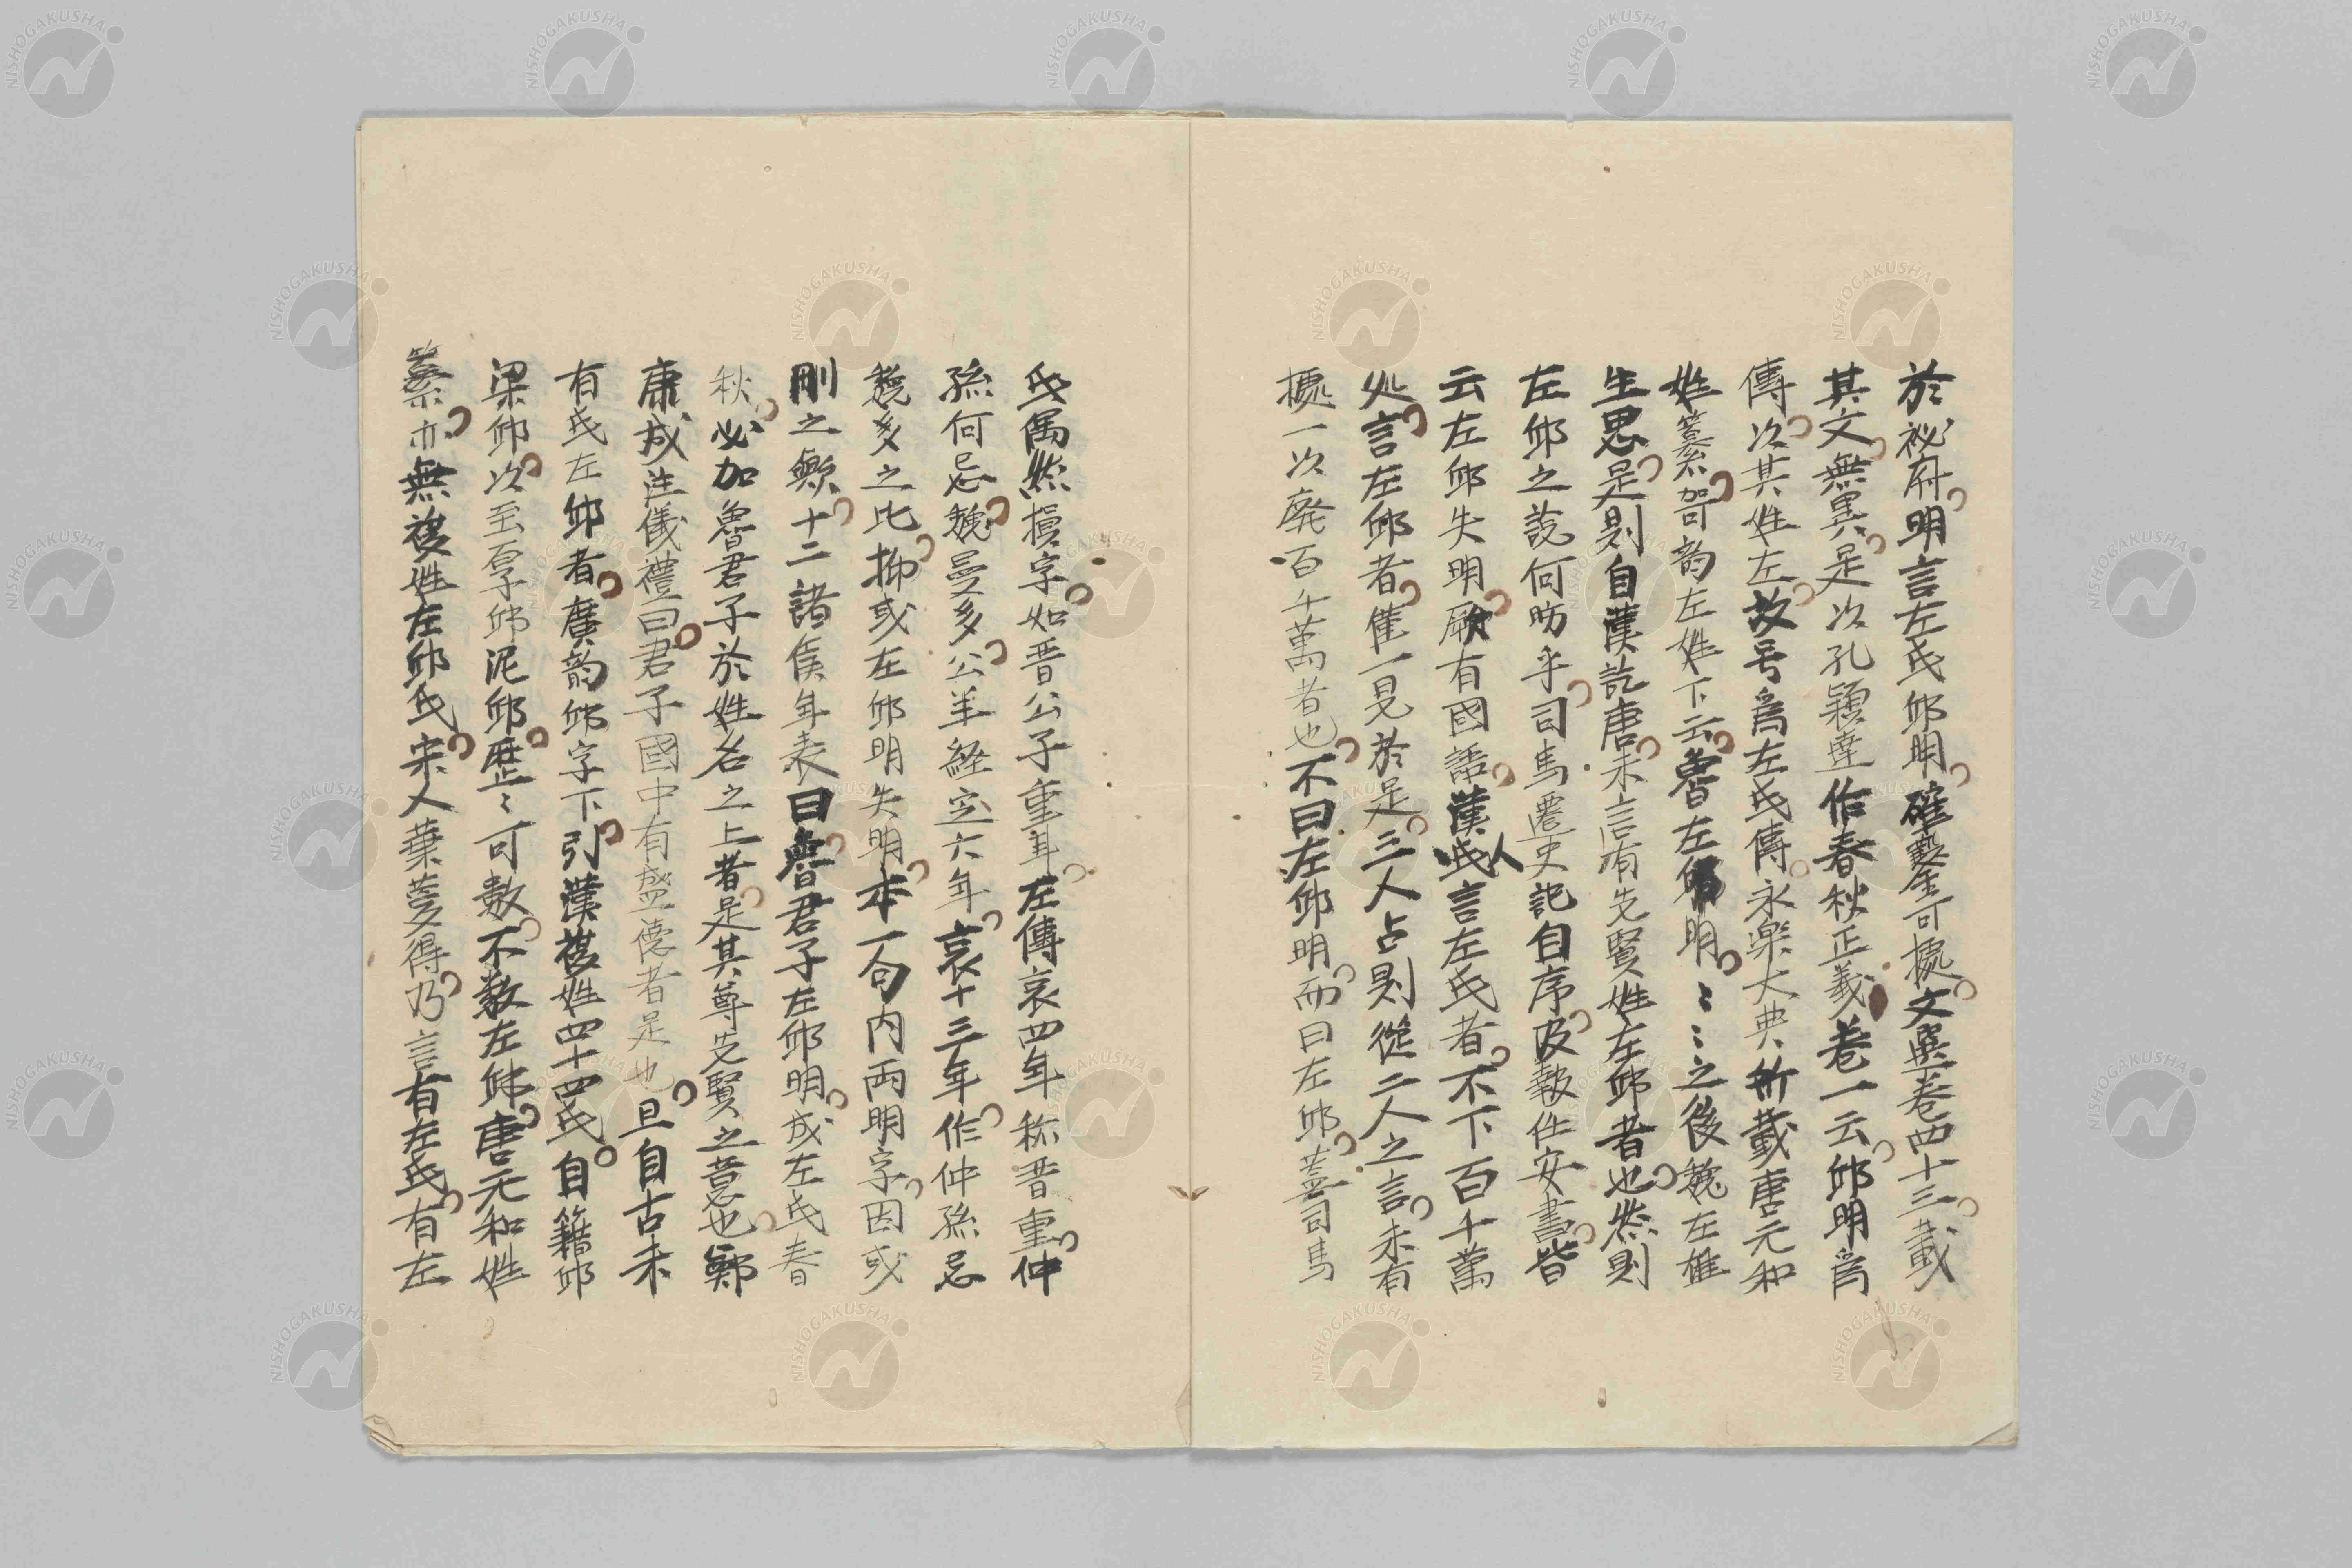 於祕府明言左氏邱明確鑿可據文選卷四十三載
其文無異是次孔穎達作春秋正義卷一云邱明爲
傳次其姓左故号爲左氏傳永樂大典所載唐元和
姓纂加可韵左姓下云魯左邱明〻〻之後魏左雄
生思是則自漢訖唐未言有先賢姓左邱者也然則
左邱之説何昉乎司馬遷史記自序及報任安書皆
云左邱失明厥有國語漢人言左氏者不下百千萬
処言左邱者隹一見於是三人占則從二人之言未有
據一次廃百千萬者也不曰左邱明而曰左邱葢司馬
氏属然損字如晋公子重耳左傳哀四年称晋重仲
孫何忌魏曼多公羊経定六年哀十三年作仲孫忌
魏多之比抑或左邱明失明本一句内両明字因或
刪之歟十二諸侯年表曰魯君子左邱明成左氏春
秋必加魯君子於姓名之上者是其尊先賢之意也鄭
康成注儀禮曰君子國中有盛德者是也且自古未
有氏左邱者廣韵邱字下引漢複姓四十四氏自籍邱
梁邱次至厚邱泥邱歴〻可数不数左邱唐元和姓
纂亦無複姓左邱氏宋人葉夢得乃言有左氏有左
NISHOGAKUSHA